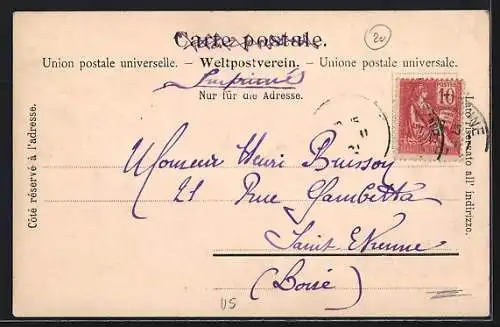 Carte postale.
20
Union postale universelle. – Weltpostverein. – Unione postale universale.
Imprimé
Nur für die Adresse.
POSTES
10
Côté réservé à l'adresse.
Lato riservato all' indirizzo.
Monsieur Henri Buisson
21 Rue Gambetta
Saint Etienne
(Loire)
US